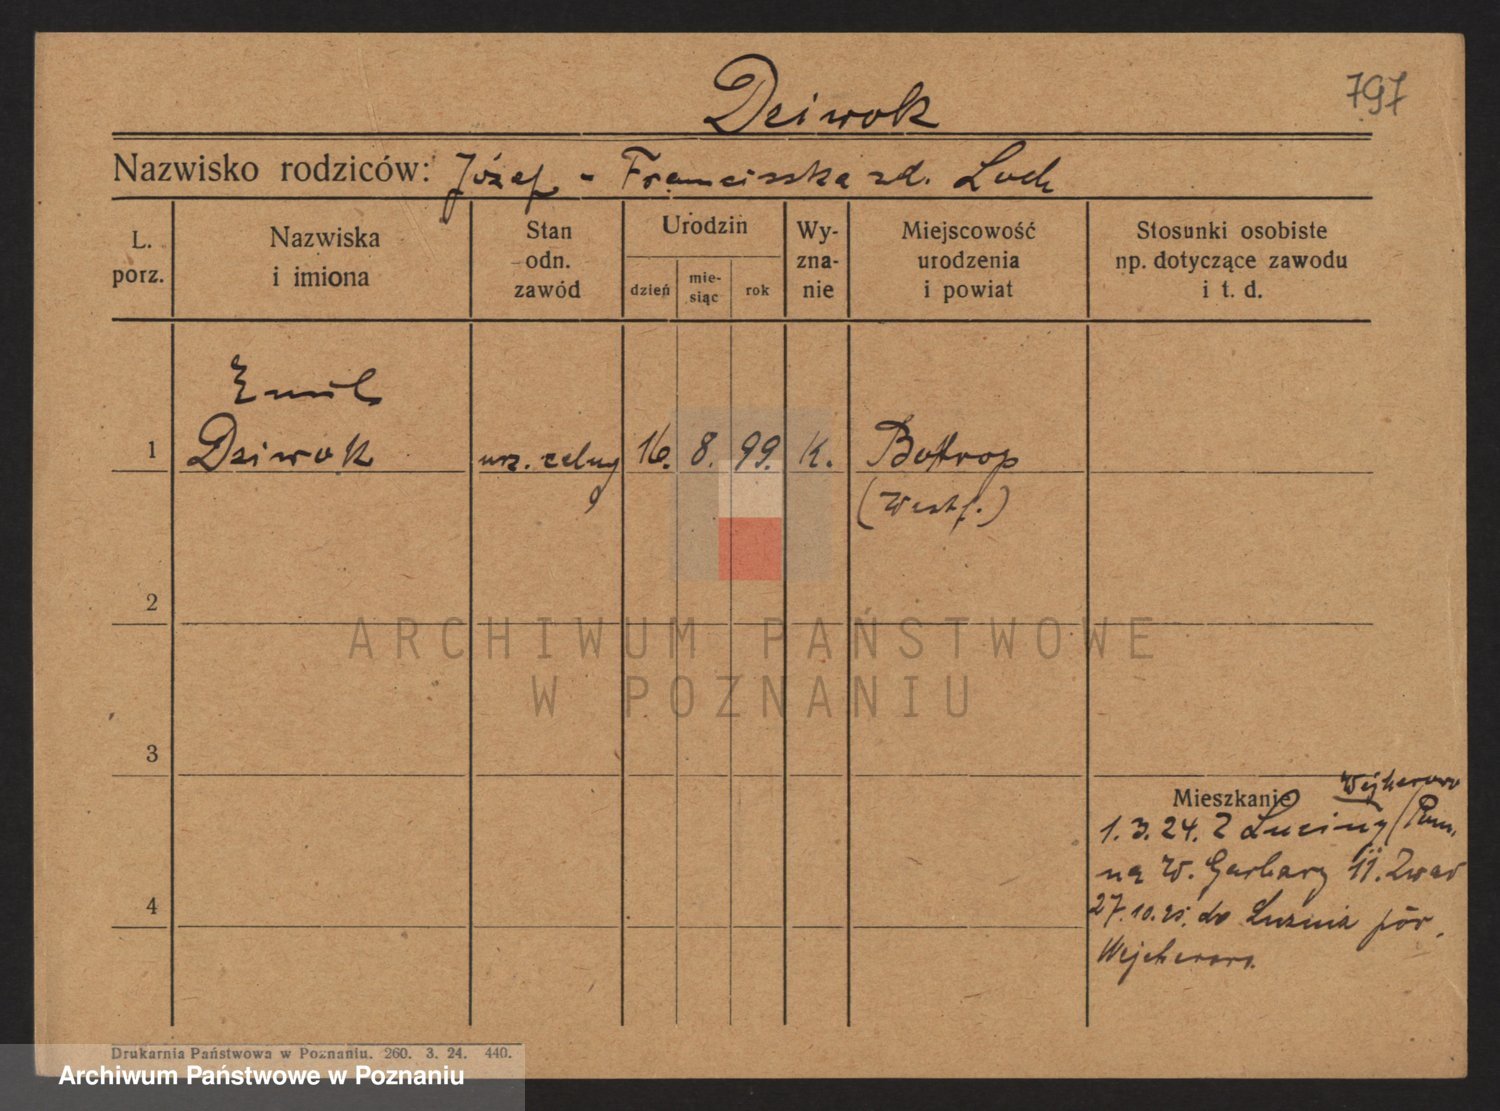 Dziwok
797
Nazwisko rodziców: Józef - Franciszka zd. Loch
L. porz.
Nazwiska i imiona
Stan odn. zawód
Urodzin
dzień
mie-siąc
rok
Wy-zna-nie
Miejscowość urodzenia i powiat
Stosunki osobiste np. dotyczące zawodu i t. d.
Emil
1 Dziwok urz. celny 16. 8. 99. K. Bottrop
(Westf.)
2
3
4
Mieszkanie Wejherowo
1.3.24. Z Luziny / Pom.
na W. Garbary 11.
27.10.25. do Luznia pow.
Wejherowo.
Drukarnia Państwowa w Poznaniu. 260. 3. 24. 440.
ARCHIWUM PAŃSTWOWE
W POZNANIU
Archiwum Państwowe w Poznaniu